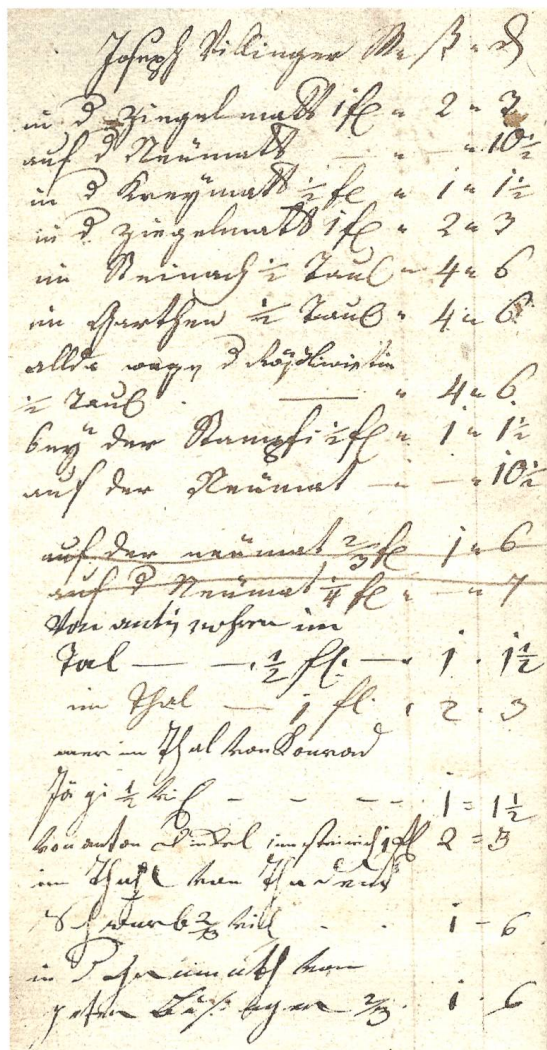 Joseph Villinger
in d Ziegelmatt 1 fl " 2 " 3
auf d Neümatt — " — " 10½
in d Kreÿmatt ½ fl " 1 " 1½
in d Ziegelmatt 1 fl " 2 " 3
im Steinach ½ Taul " 4 " 6
im Garthen ½ Taul " 4 " 6
allda wegen d
½ Taul — " 4 " 6
beÿ der Stampfi ½ fl " 1 " 1½
auf der Neümat — " — " 10½
auf der neümat 2/3 fl 1 " 6
auf d Neümat ¼ fl " — " 7
Von im
Tal — — ½ fl. — 1 . 1½
im Thal — 1 fl. 2 . 3
mer im Thal von Konrad
Jägi ½ - - - - 1 = 1½
von anton Dinkel im steinich 1 fl 2 = 3
im Thal von
Schwarb 2/3 - - 1 - 6
in von
2/3 . 1 . 6